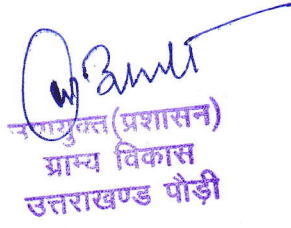 उपायुक्त(प्रशासन)
ग्राम्य विकास
उत्तराखण्ड पौड़ी